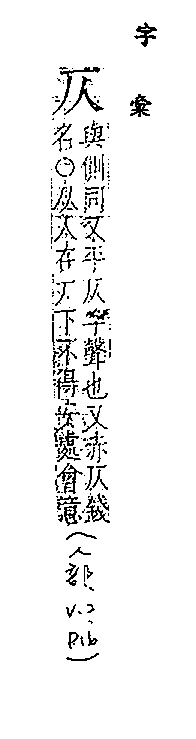 字彙
仄
與側同又平仄聲也又赤仄錢
名○从人在厂下不得安處會意
(人部、
v.2、
p1b)